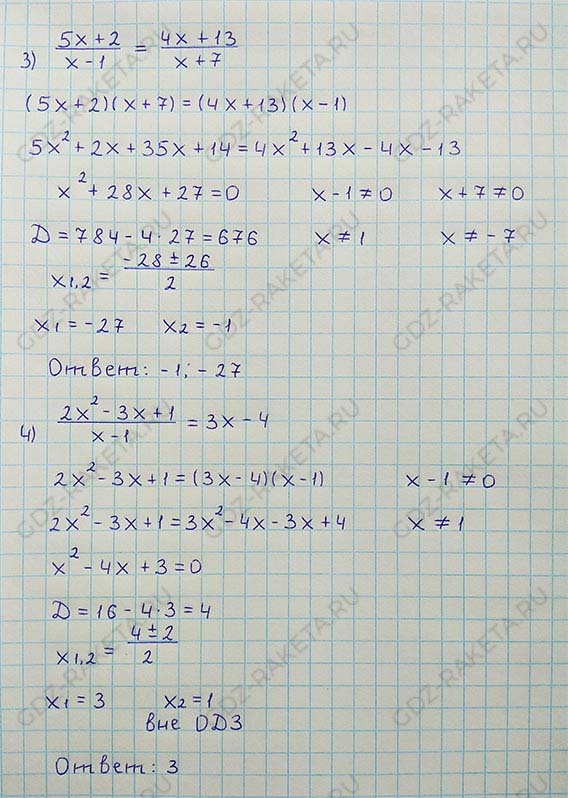 3) (5x+2)/(x-1) = (4x+13)/(x+7)
(5x+2)(x+7)=(4x+13)(x-1)
5x²+2x+35x+14=4x²+13x-4x-13
x²+28x+27=0 x-1≠0 x+7≠0
Д=784-4·27=676 x≠1 x≠-7
x1,2=(-28±26)/2
x1=-27 x2=-1
Ответ: -1; -27
4) (2x²-3x+1)/(x-1) = 3x-4
2x²-3x+1=(3x-4)(x-1) x-1≠0
2x²-3x+1=3x²-4x-3x+4 x≠1
x²-4x+3=0
Д=16-4·3=4
x1,2=(4±2)/2
x1=3 x2=1
вне ОДЗ
Ответ: 3
GDZ-RAKETA.RU